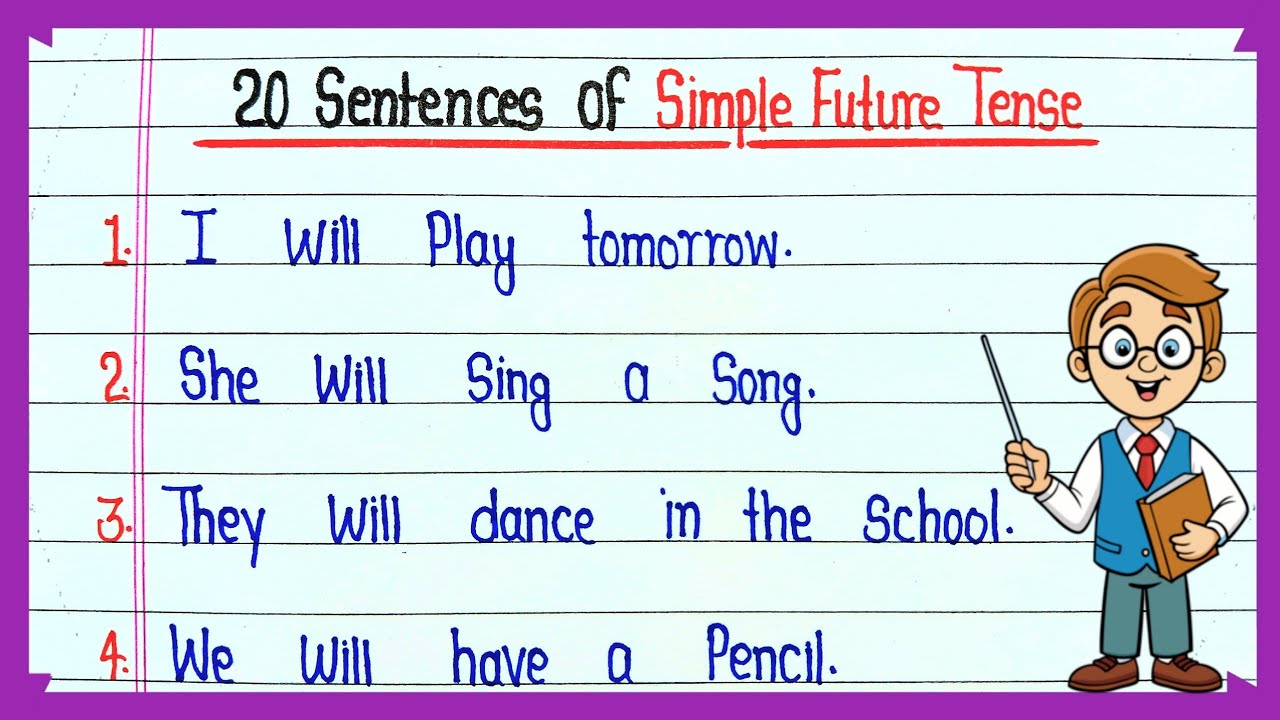 20 Sentences of Simple Future Tense
1. I will Play tomorrow.
2. She will Sing a Song.
3. They will dance in the School.
4. We will have a Pencil.